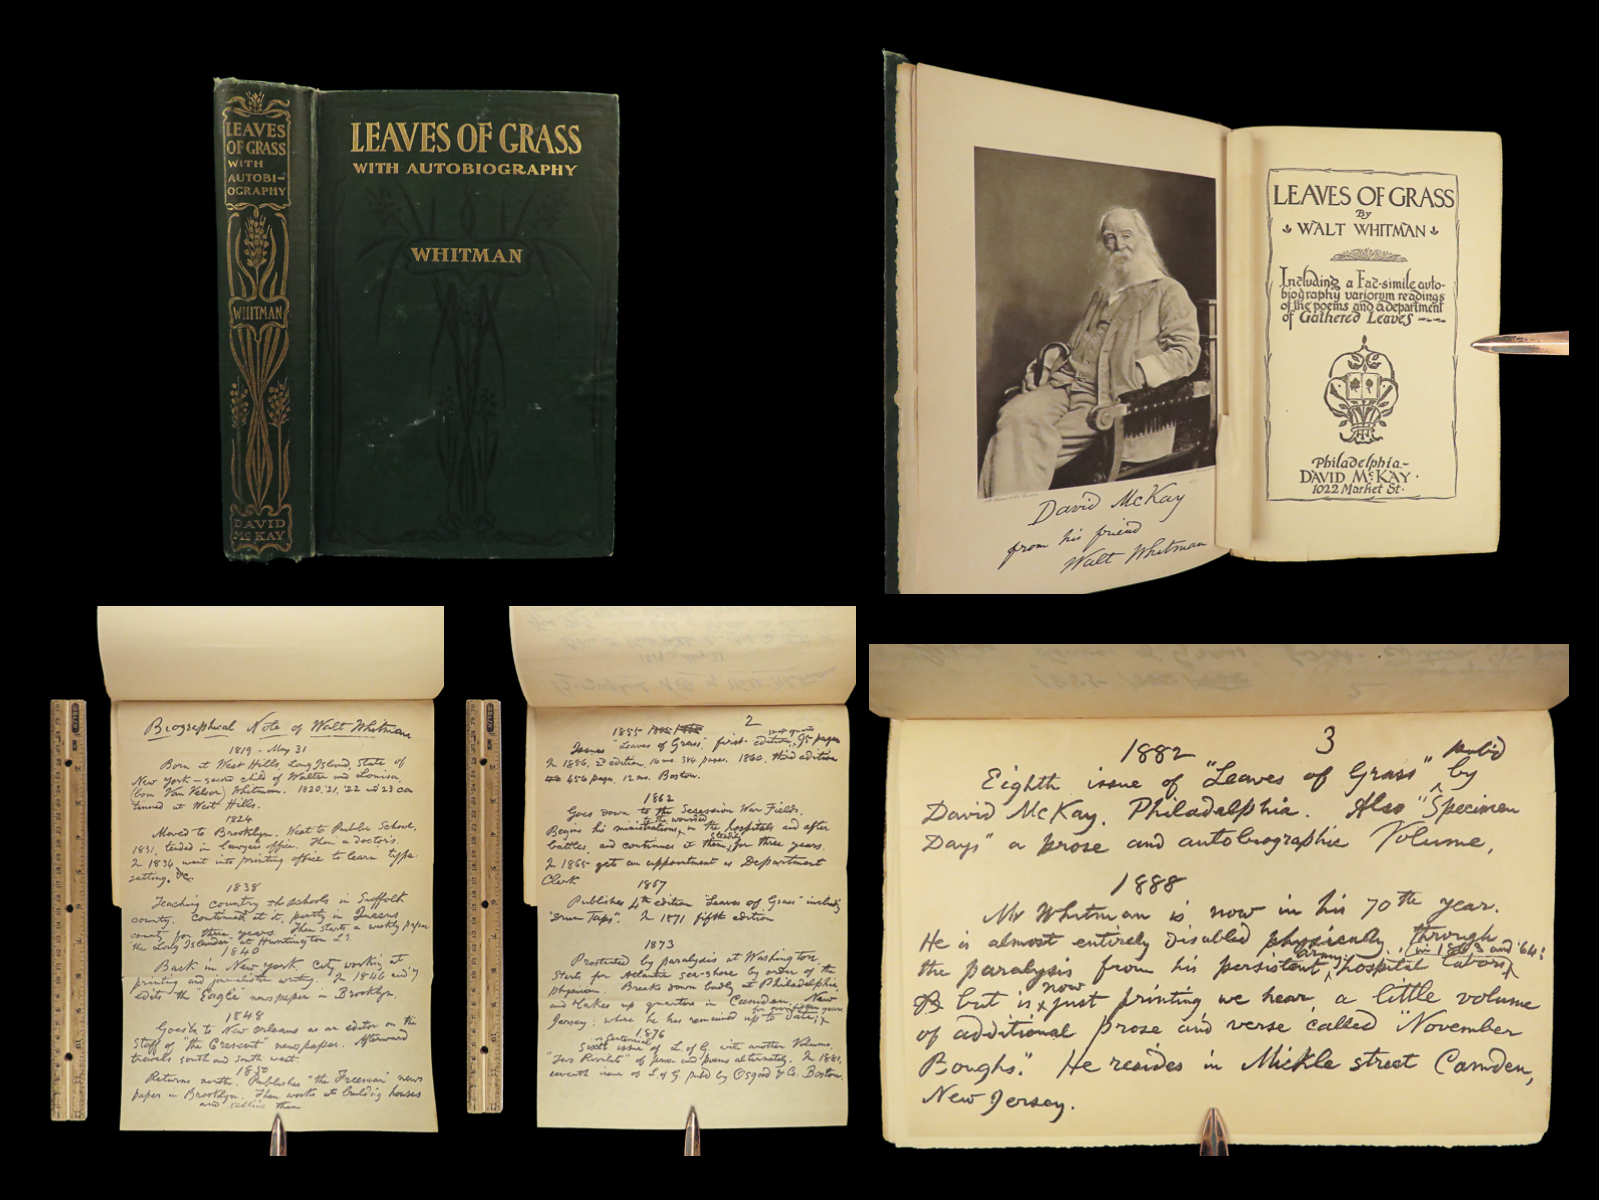 LEAVES
OF GRASS
WITH
AUTOBI-
OGRAPHY
WHITMAN
DAVID
McKAY
LEAVES OF GRASS
WITH AUTOBIOGRAPHY
WHITMAN
David McKay
from his friend
Walt Whitman
LEAVES OF GRASS
By
WALT WHITMAN
Including a Fac-simile auto-
biography variorum readings
of the poems and a department
of Gathered Leaves
Philadelphia-
DAVID McKAY
1022 Market St.
Biographical Note of Walt Whitman
1819 - May 31
Born at West Hills, Long Island, State of
New York - second child of Walter and Louisa,
(born Van Velsor) Whitman. 1820, '21, '22 and '23 con
tinued at West Hills.
1824
Moved to Brooklyn. Went to Public School,
1831, tended in lawyers office. Then a doctor's.
In 1834 went into printing office to learn type
setting, &c.
1838
Teaching country schools in Suffolk
county. Continued at it, partly in Queens
county for three years. Then starts a weekly paper
the "Long Islander" at Huntington L I.
1840
Back in New York city working at
printing and journalistic writing. In 1846 and '7
edits the "Eagle" newspaper in Brooklyn.
1848
Goes to New Orleans as an editor on the
staff of "the Crescent" newspaper. Afterward
travels south and south west.
1850
Returns north. Publishes "the Freeman" news
paper in Brooklyn. Then works at building houses
and selling them
2
1855
Issues "Leaves of Grass," first edition, small quarto 95 pages
In 1856, 2d edition, 16 mo 384 pages. 1860, third edition
456 pages, 12 mo. Boston.
1862
Goes down to the Secession War Fields.
Begins his ministrations to the wounded in the hospitals and after
battles, and continues at them steadily for three years.
In 1865 gets an appointment as Department
Clerk
1867
Publishes 4th edition "Leaves of Grass" including
"Drum Taps". In 1871 fifth edition
1873
Prostrated by paralysis at Washington.
Starts for Atlantic sea-shore by order of the
physician. Breaks down badly at Philadelphia
and takes up quarters in Camden, New
Jersey; where he has remained up to date;
1876
Centennial
Sixth issue of L. of G. with another Volume,
"Two Rivulets" of prose and poems alternately. In 1881,
seventh issue of L of G. pub'd by Osgood & Co. Boston.
3
1882
Eighth issue of "Leaves of Grass" pub'd by
David McKay. Philadelphia. Also "Specimen
Days" a prose and autobiographic Volume,
1888
Mr Whitman is now in his 70th year.
He is almost entirely disabled physically, through
the paralysis from his persistent army hospital labors in 1863 and '64:
but is now just printing we hear, a little volume
of additional prose and verse called "November
Boughs." He resides in Mickle street Camden,
New Jersey.